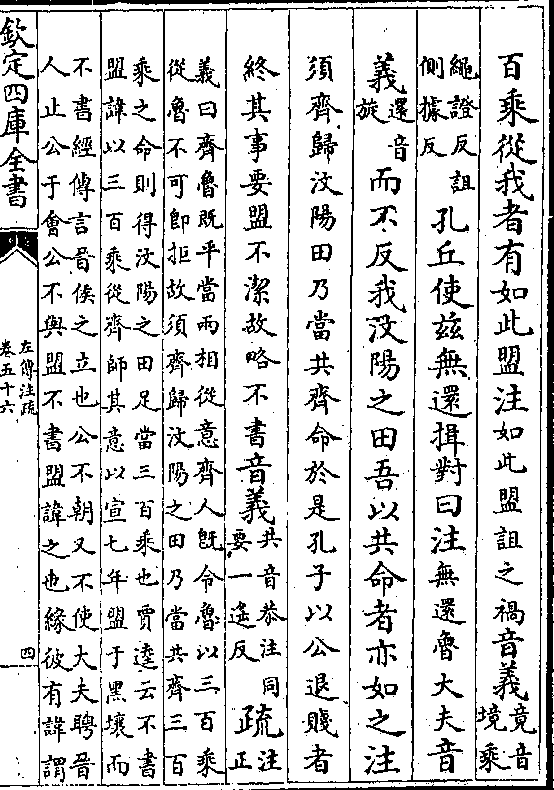 百乘從我者有如此盟注如此盟詛之禍音義竟音境乘
繩證反詛側據反孔丘使兹無還揖對曰注無還魯大夫音
義還音旋而不反我汶陽之田吾以共命者亦如之注
須齊歸汶陽田乃當共齊命於是孔子以公退賤者
終其事要盟不潔故略不書音義共音恭注同要一遙反疏注正
義曰齊魯既平當兩相從意齊人旣令魯以三百乘
從魯不可即拒故須齊歸汶陽之田乃當共齊三百
乘之命則得汶陽之田足當三百乘也賈逵云不書
盟諱以三百乘從齊師其意以宣七年盟于黑壤而
不書經傳言晉侯之立也公不朝又不使大夫聘晉
人止公于會公不與盟不書盟諱之也緣彼有諱謂
欽定四庫全書
左傳注疏
卷五十六
四